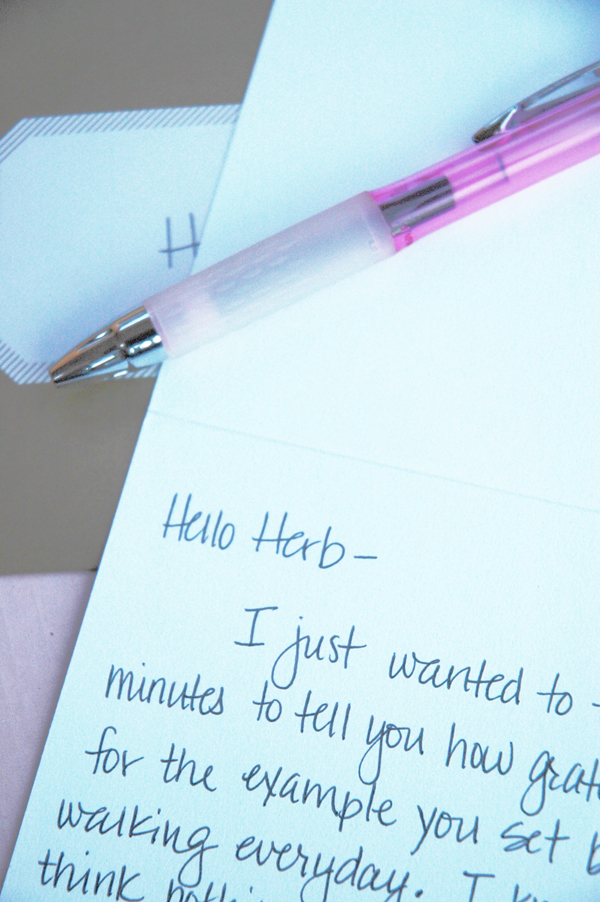 H
Hello Herb –
I just wanted to
minutes to tell you how
for the example you set
walking everyday. I
think